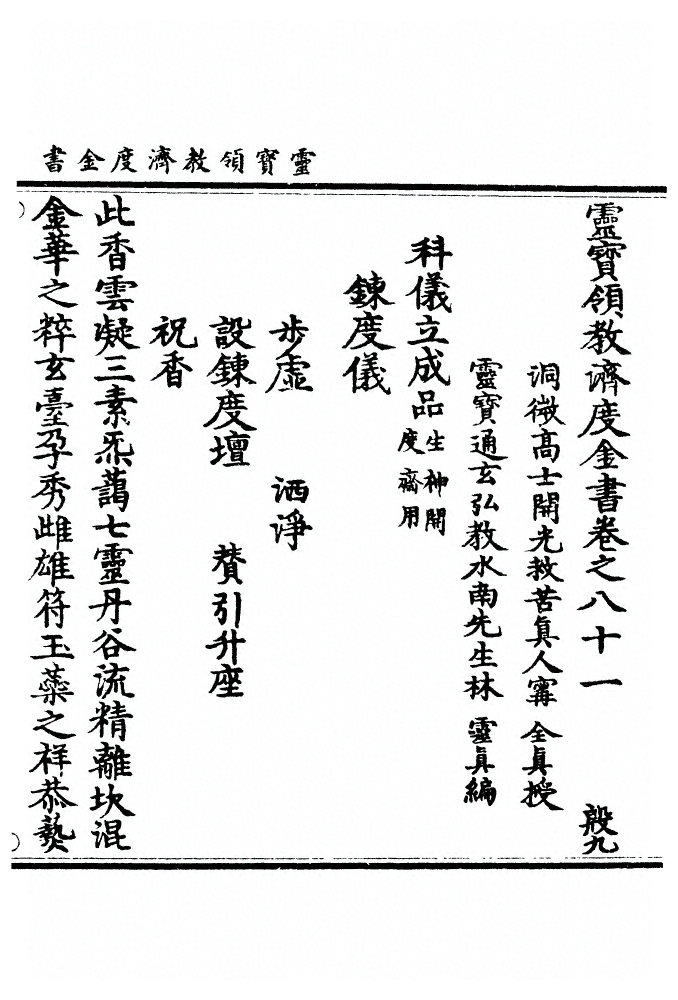 靈寶領教濟度金書
靈寶領教濟度金書卷之八十一　殿九
洞微高士開光救苦真人寗　全真授
靈寶通玄弘教水南先生林　靈真編
科儀立成品生神開度齋用
鍊度儀
步虛　洒淨
設鍊度壇　賛引升座
祝香
此香雲凝三素炁藹七靈丹谷流精離坎混
金華之粹玄臺孕秀雌雄符玉蘂之祥恭爇